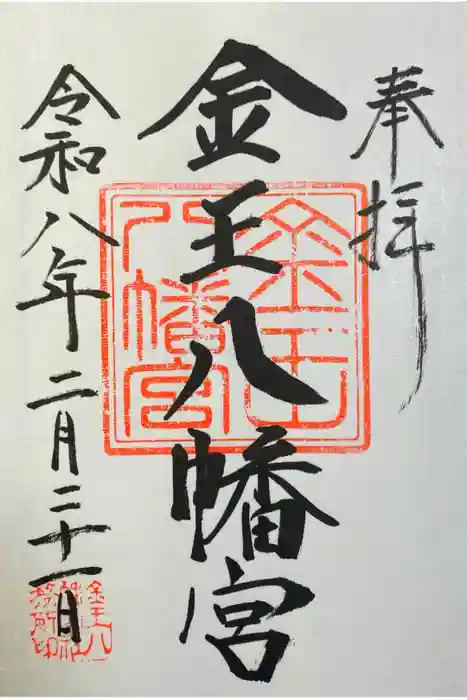 奉拝
金王八幡宮
金王
八幡宮
令和八年二月二十一日
金王八
務所印